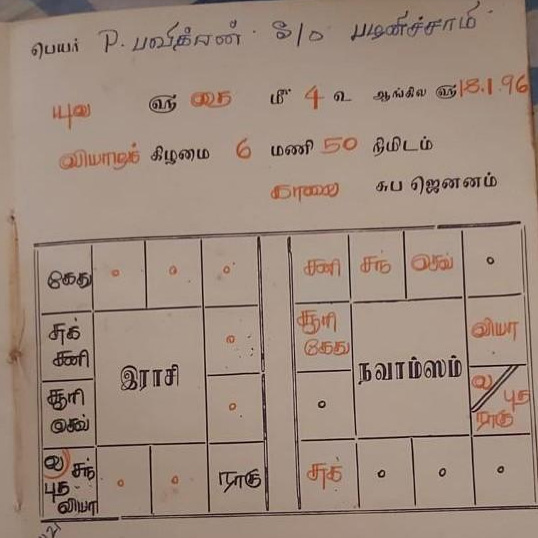 பெயர் P. பவிக்ஷன் S/o பழனிச்சாமி
யுவ ௵ தை மீ 4 உ ஆங்கில ௵ 18.1.96
வியாழக் கிழமை 6 மணி 50 நிமிடம்
காலை சுப ஜெனனம்
கேது ० ० ० சனி சந் செவ் ०
சுக் சனி ० சூரி கேது வியா
இராசி நவாம்ஸம்
சூரி செவ் ० ० ல புத ராகு
ல சந் புத வியா ० ० ராகு சுக் ० ० ०